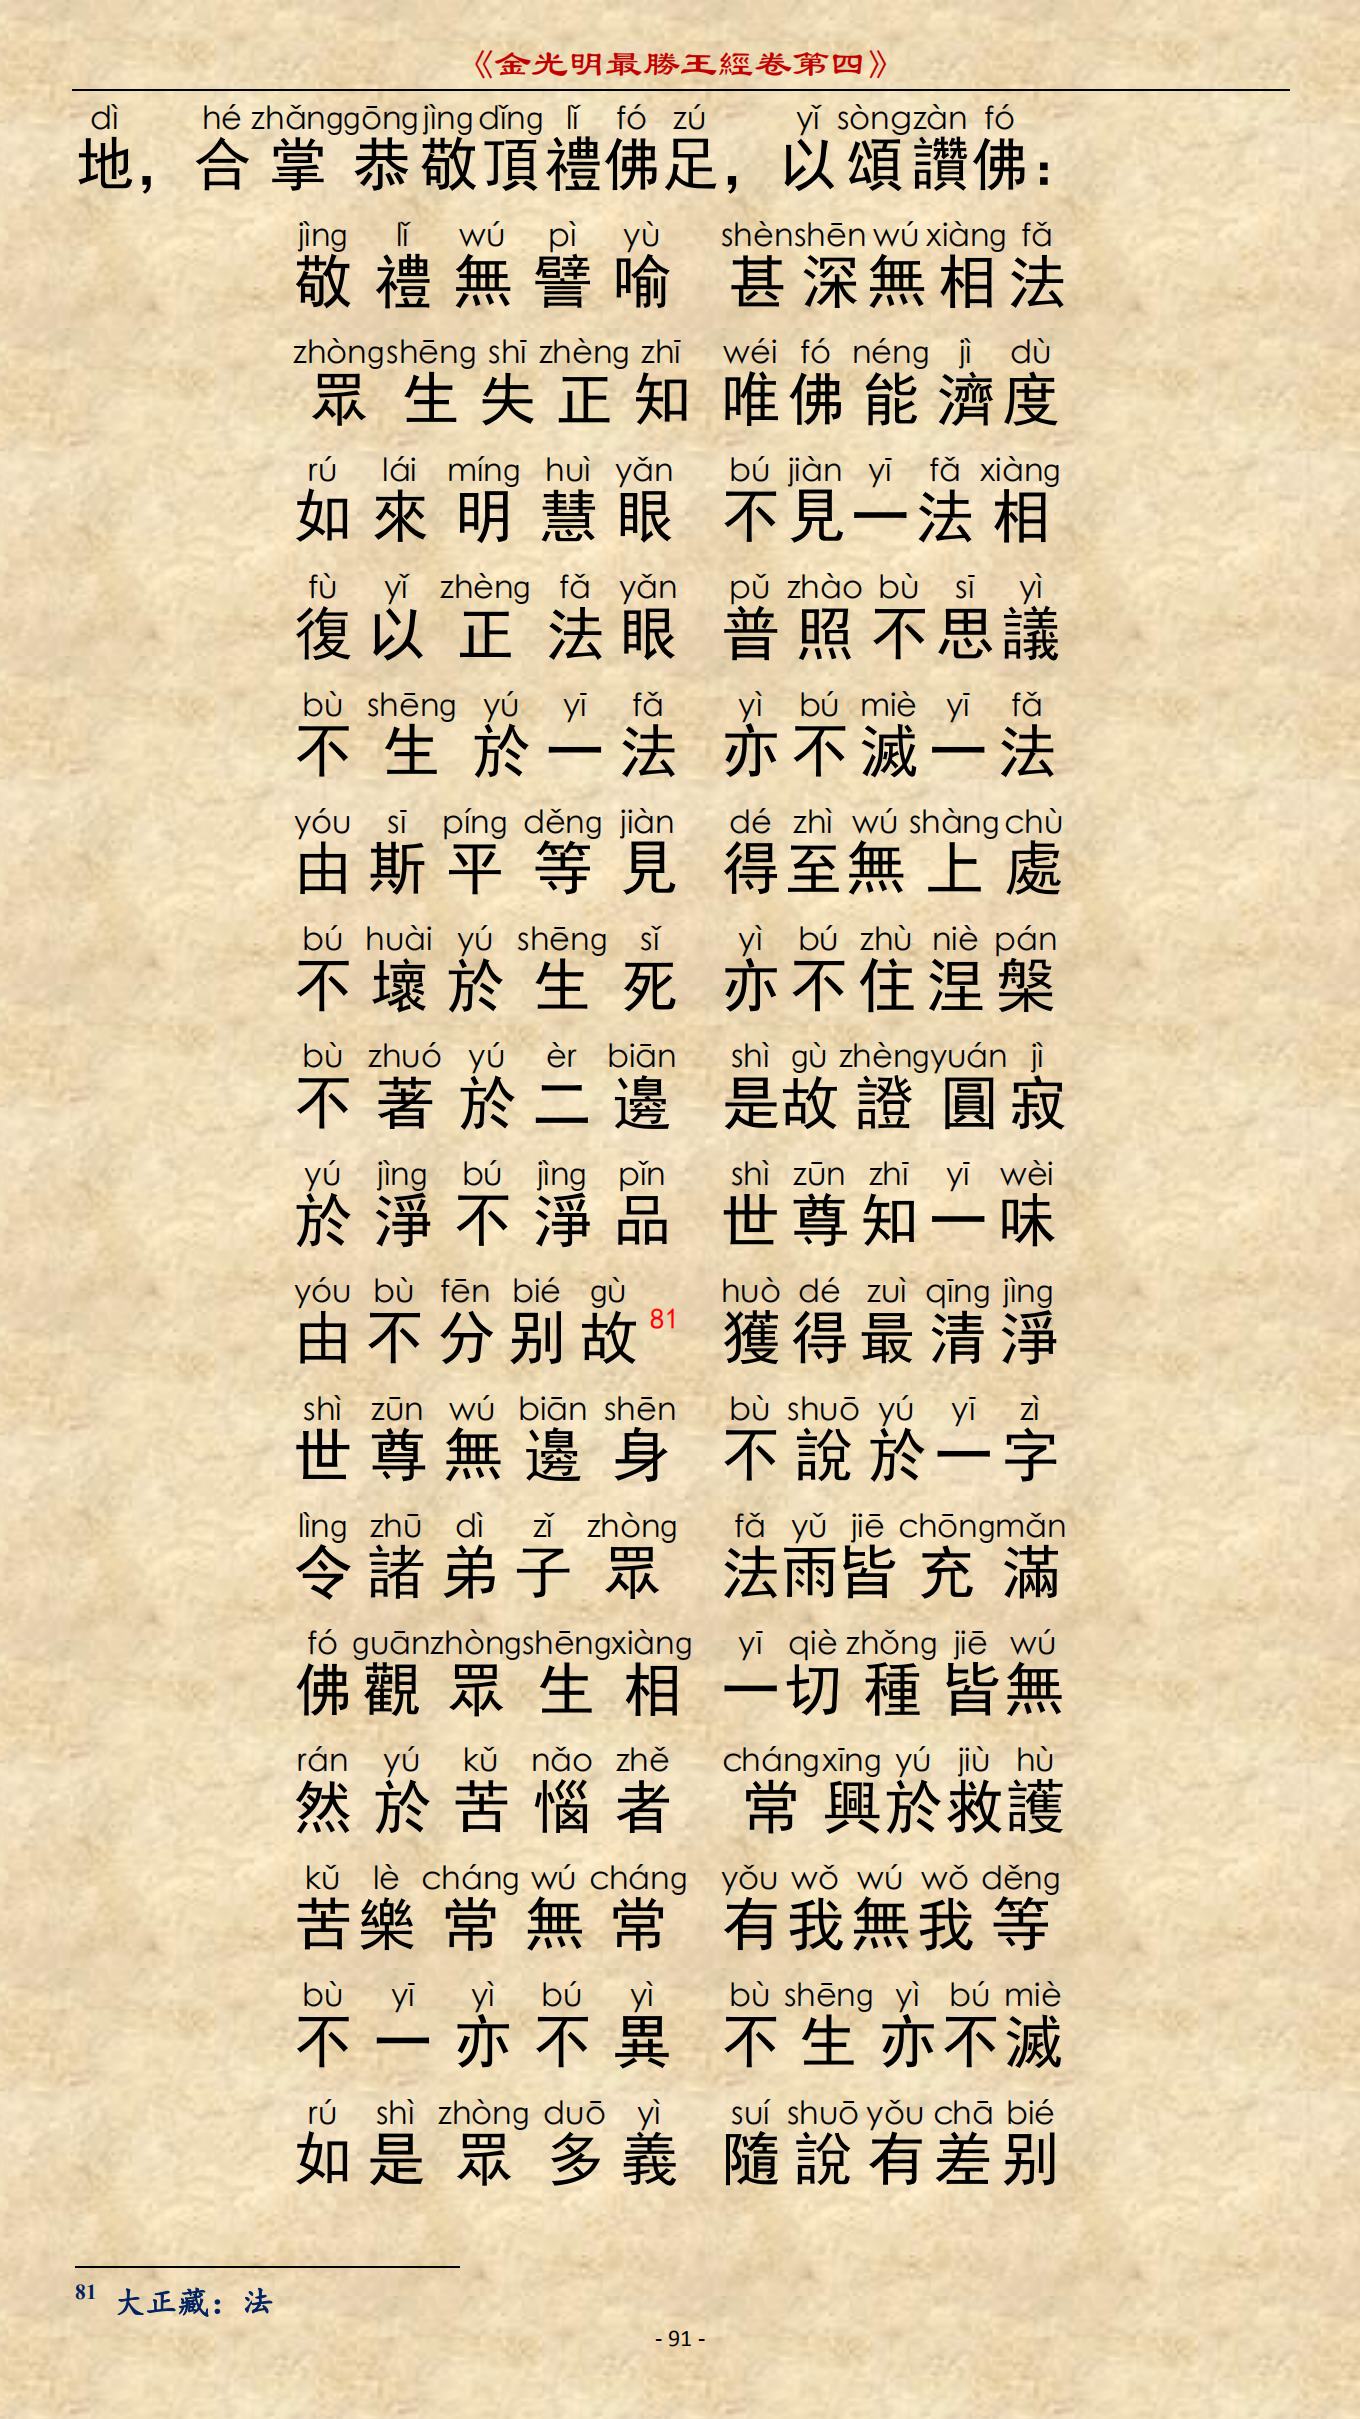 《金光明最勝王經卷第四》
dì hé zhǎng gōng jìng dǐng lǐ fó zú yǐ sòng zàn fó
地，合掌恭敬頂禮佛足，以頌讚佛：
jìng lǐ wú pì yù shèn shēn wú xiàng fǎ
敬禮無譬喻 甚深無相法
zhòng shēng shī zhèng zhī wéi fó néng jì dù
眾生失正知 唯佛能濟度
rú lái míng huì yǎn bú jiàn yī fǎ xiàng
如來明慧眼 不見一法相
fù yǐ zhèng fǎ yǎn pǔ zhào bù sī yì
復以正法眼 普照不思議
bù shēng yú yī fǎ yì bú miè yī fǎ
不生於一法 亦不滅一法
yóu sī píng děng jiàn dé zhì wú shàng chù
由斯平等見 得至無上處
bú huài yú shēng sǐ yì bú zhù niè pán
不壞於生死 亦不住涅槃
bù zhuó yú èr biān shì gù zhèng yuán jì
不著於二邊 是故證圓寂
yú jìng bú jìng pǐn shì zūn zhī yī wèi
於淨不淨品 世尊知一味
yóu bù fēn bié gù huò dé zuì qīng jìng
由不分別故81 獲得最清淨
shì zūn wú biān shēn bù shuō yú yī zì
世尊無邊身 不說於一字
lìng zhū dì zǐ zhòng fǎ yǔ jiē chōng mǎn
令諸弟子眾 法雨皆充滿
fó guān zhòng shēng xiàng yī qiè zhǒng jiē wú
佛觀眾生相 一切種皆無
rán yú kǔ nǎo zhě cháng xīng yú jiù hù
然於苦惱者 常興於救護
kǔ lè cháng wú cháng yǒu wǒ wú wǒ děng
苦樂常無常 有我無我等
bù yī yì bú yì bù shēng yì bú miè
不一亦不異 不生亦不滅
rú shì zhòng duō yì suí shuō yǒu chā bié
如是眾多義 隨說有差別
81 大正藏：法
- 91 -